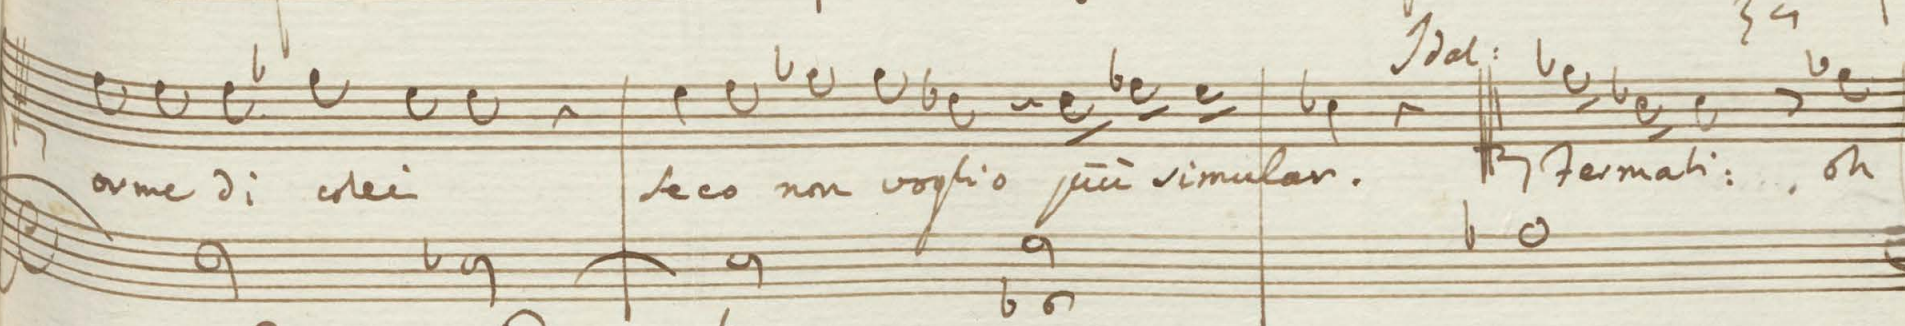 34
Idal:
orme di colei seco non voglio più simular. Fermati: oh
b6